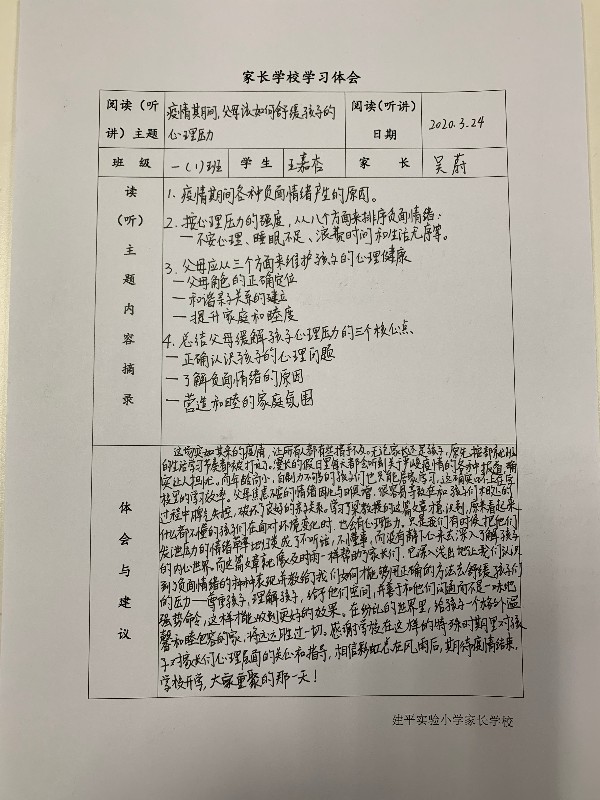 家长学校学习体会
阅读（听讲）主题
疫情期间，父母该如何舒缓孩子的
心理压力
阅读（听讲）日期
2020.3.24
班 级
一（1）班
学 生
王嘉杏
家 长
吴蔚
读（听）主题内容摘录
1. 疫情期间各种负面情绪产生的原因。
2. 按心理压力的强度，从八个方面来排序负面情绪：
—不安心理、睡眠不足、浪费时间和生活无序等。
3. 父母应从三个方面来维护孩子的心理健康
—父母角色的正确定位
—和谐亲子关系的建立
—提升家庭和睦度
4. 总结父母缓解孩子心理压力的三个核心点、
—正确认识孩子的心理问题
—了解负面情绪的原因
—营造和睦的家庭氛围
体会与建议
这场突如其来的疫情，让所有人都有些措手不及。无论家长还是孩子，原先按部就班
的生活学习节奏都被打乱了。漫长的假日里每天都会听到关于严峻疫情的各种报道，确
实让人担忧。而年龄尚小，自制力不够的孩子们也只能居家学习，这确实比不上在学
校里的学习效率。父母焦虑不安的情绪因此与日俱增，很容易导致在和孩子们相处的
过程中脾气失控，破坏了良好的亲子关系。学习了吴教授的这篇文章才意识到，原来看起来
什么都不懂的孩子们在面对环境变化时，也会有心理压力。只是我们有时候把他们
发泄压力的情绪草率地归类成了不听话，不懂事，而没有静下心来去深入了解孩子
的内心世界。而这篇文章就像及时雨一样帮助了家长们，它深入浅出地让我们认识
到了负面情绪的种种表现并教给了我们如何才能够用正确的方法去舒缓孩子们
的压力——尊重孩子，理解孩子，给予他们空间，并善于和他们沟通而不是一味地
强势命令，这样才能收到更好的效果。在纷乱的世界里，给孩子一个核心温
馨和睦包容的家，将远远胜过一切。感谢学校在这样的特殊时期里对孩
子对家长们心理层面的关心和指导，相信彩虹总在风雨后，期待疫情结束，
学校开学，大家重聚的那一天！
建平实验小学家长学校